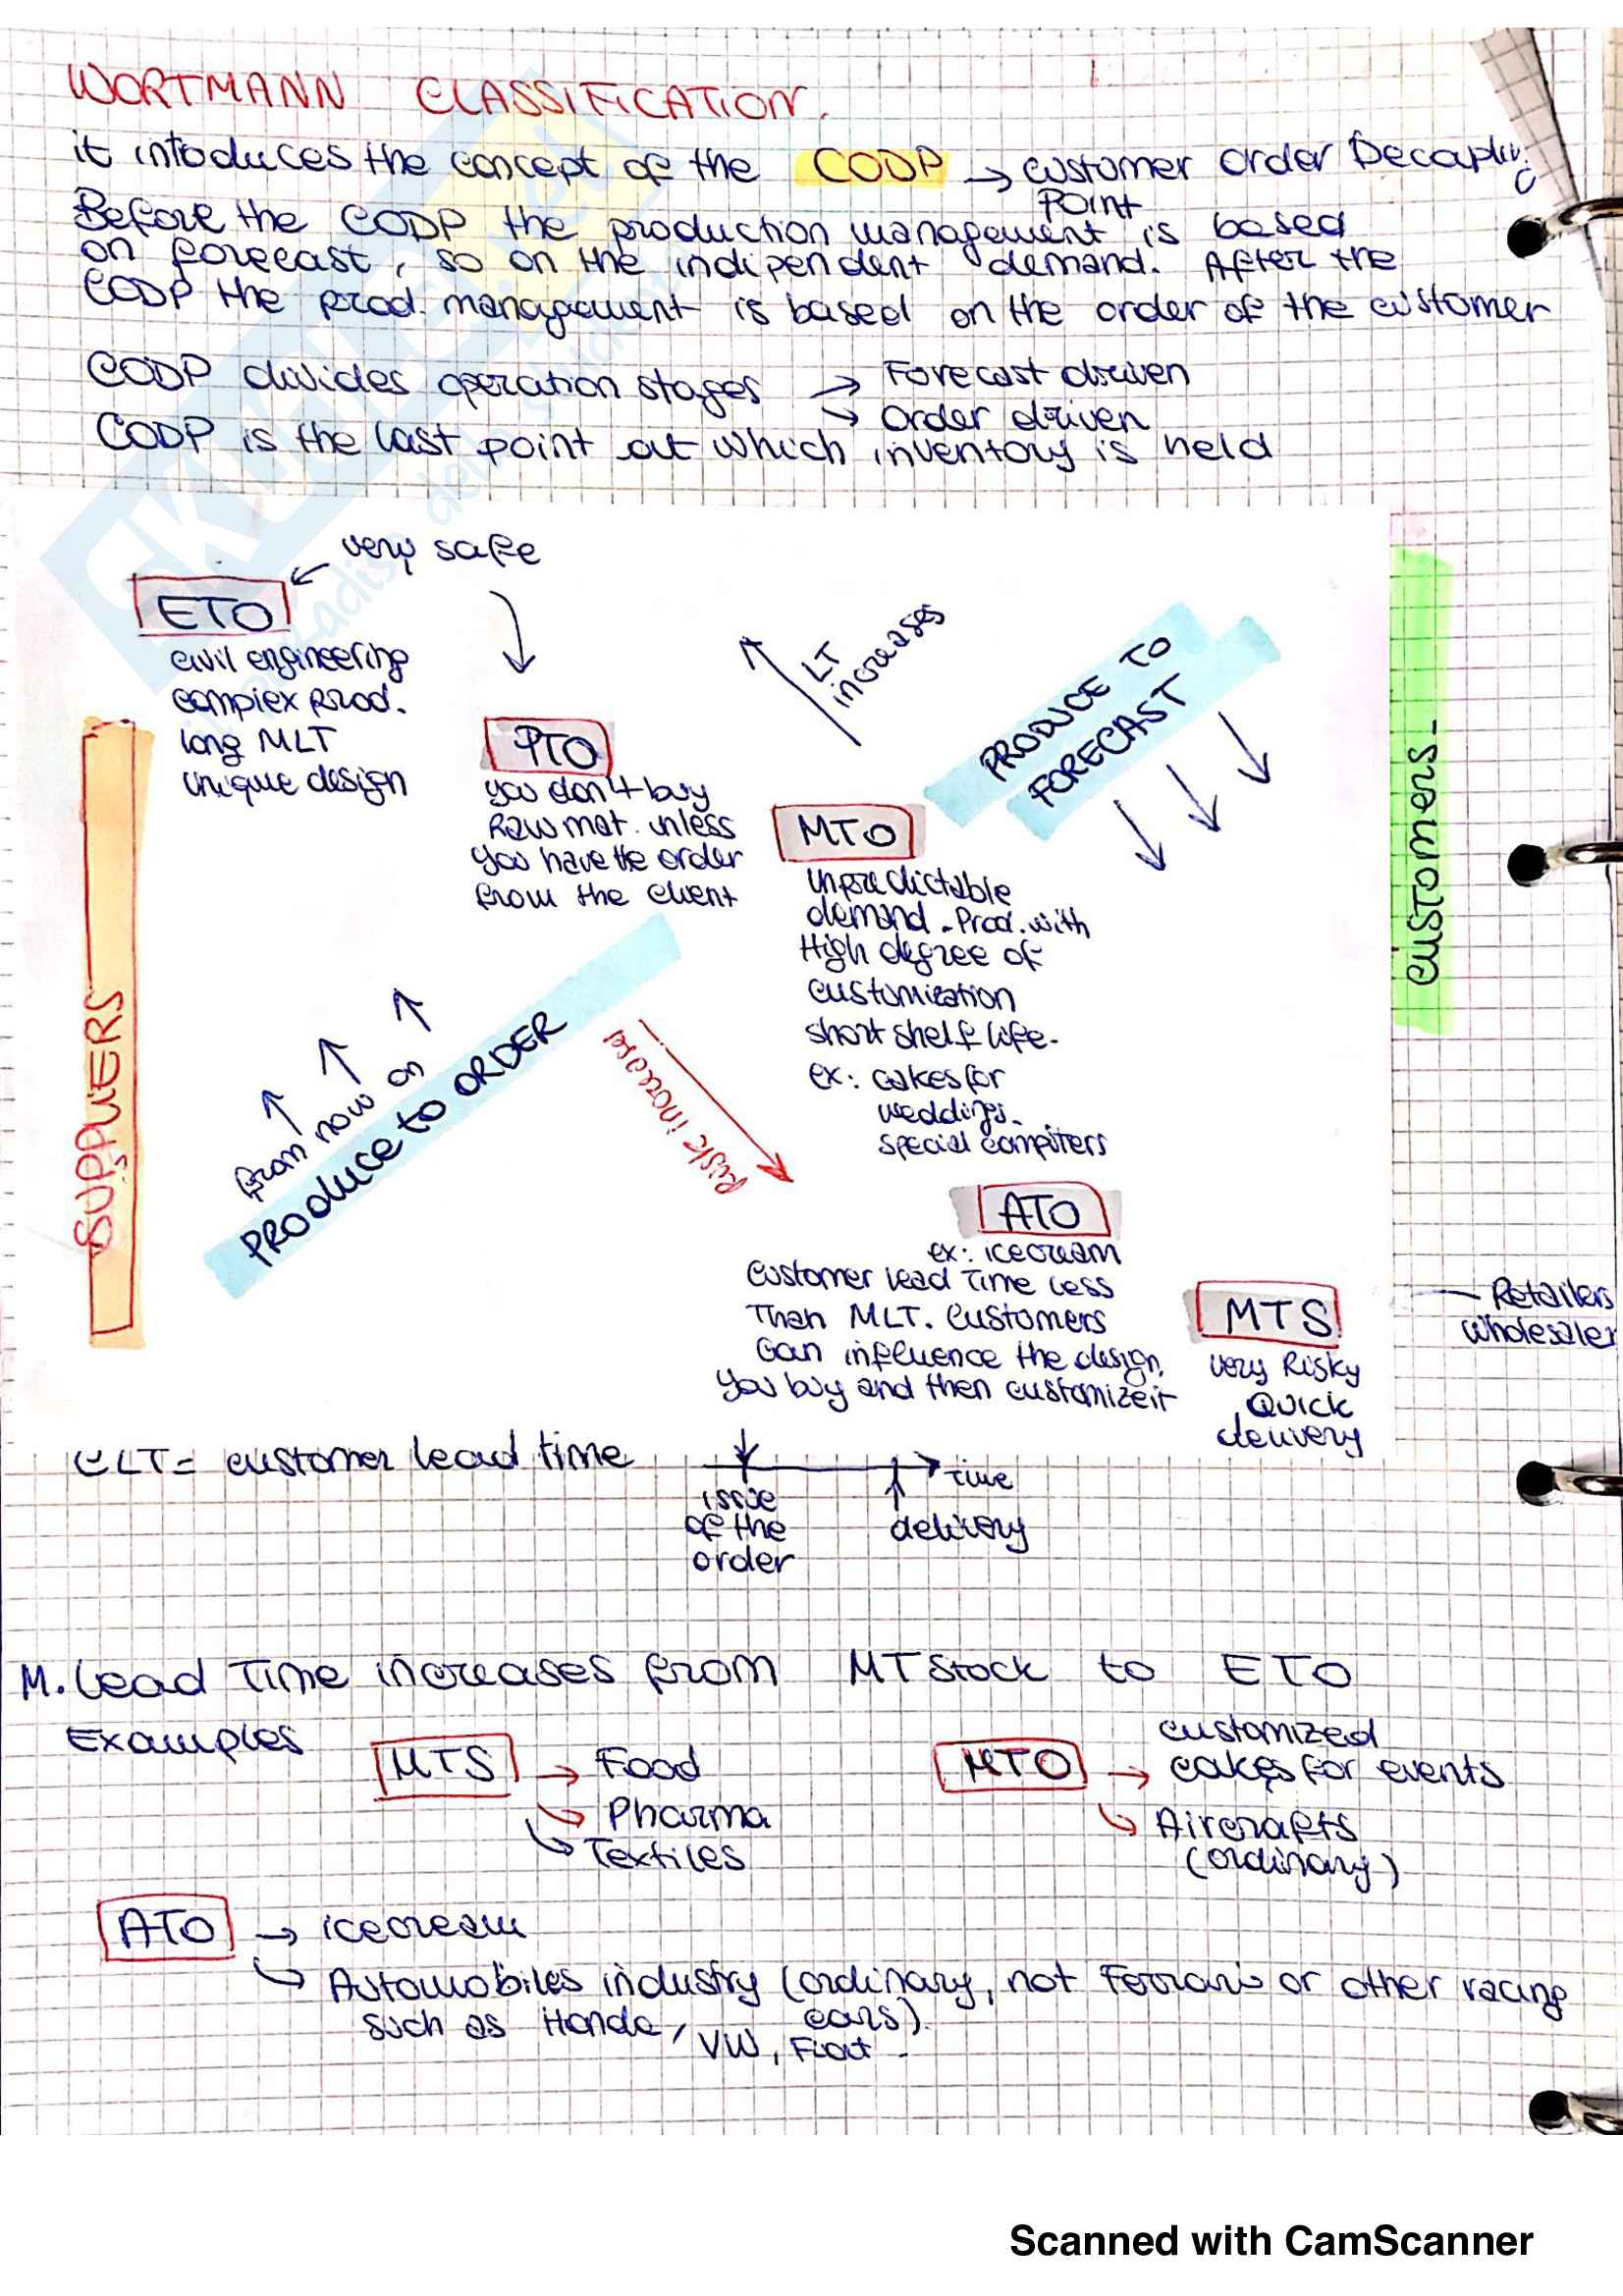 WORTMANN CLASSIFICATION.
it intoduces the concept of the CODP → customer order Decoupling
Point
Before the CODP the production management is based
on forecast, so on the indipendent demand. After the
CODP the prod. management is based on the order of the customer
CODP divides operation stages → Forecast driven
↘ order driven
CODP is the last point at which inventory is held
very safe
ETO
civil engineering
complex prod.
long MLT
unique design
PTO
you don't buy
Raw mat. unless
you have the order
from the client
LT
increases
PRODUCE TO
FORECAST
MTO
unpredictable
demand. Prod. with
High degree of
customization
short shelf life.
ex: cakes for
weddings.
special computers
SUPPLIERS
customers
from now on
PRODUCE to ORDER
Risk increase
ATO
ex: icecream
customer lead Time less
Than MLT. Customers
can influence the design.
you buy and then customize it
MTS
very Risky
Quick
delivery
Retailers
wholesaler
CLT = customer lead time
Time
issue
of the
order
delivery
M. Lead Time increases from MTStock to ETO
Examples
MTS → Food
Pharma
Textiles
MTO → customized
cakes for events
Aircrafts
(ordinary)
ATO → icecream
Automobiles industry (ordinary, not Ferrari or other racing
cars).
such as Honda, VW, Fiat
Scanned with CamScanner